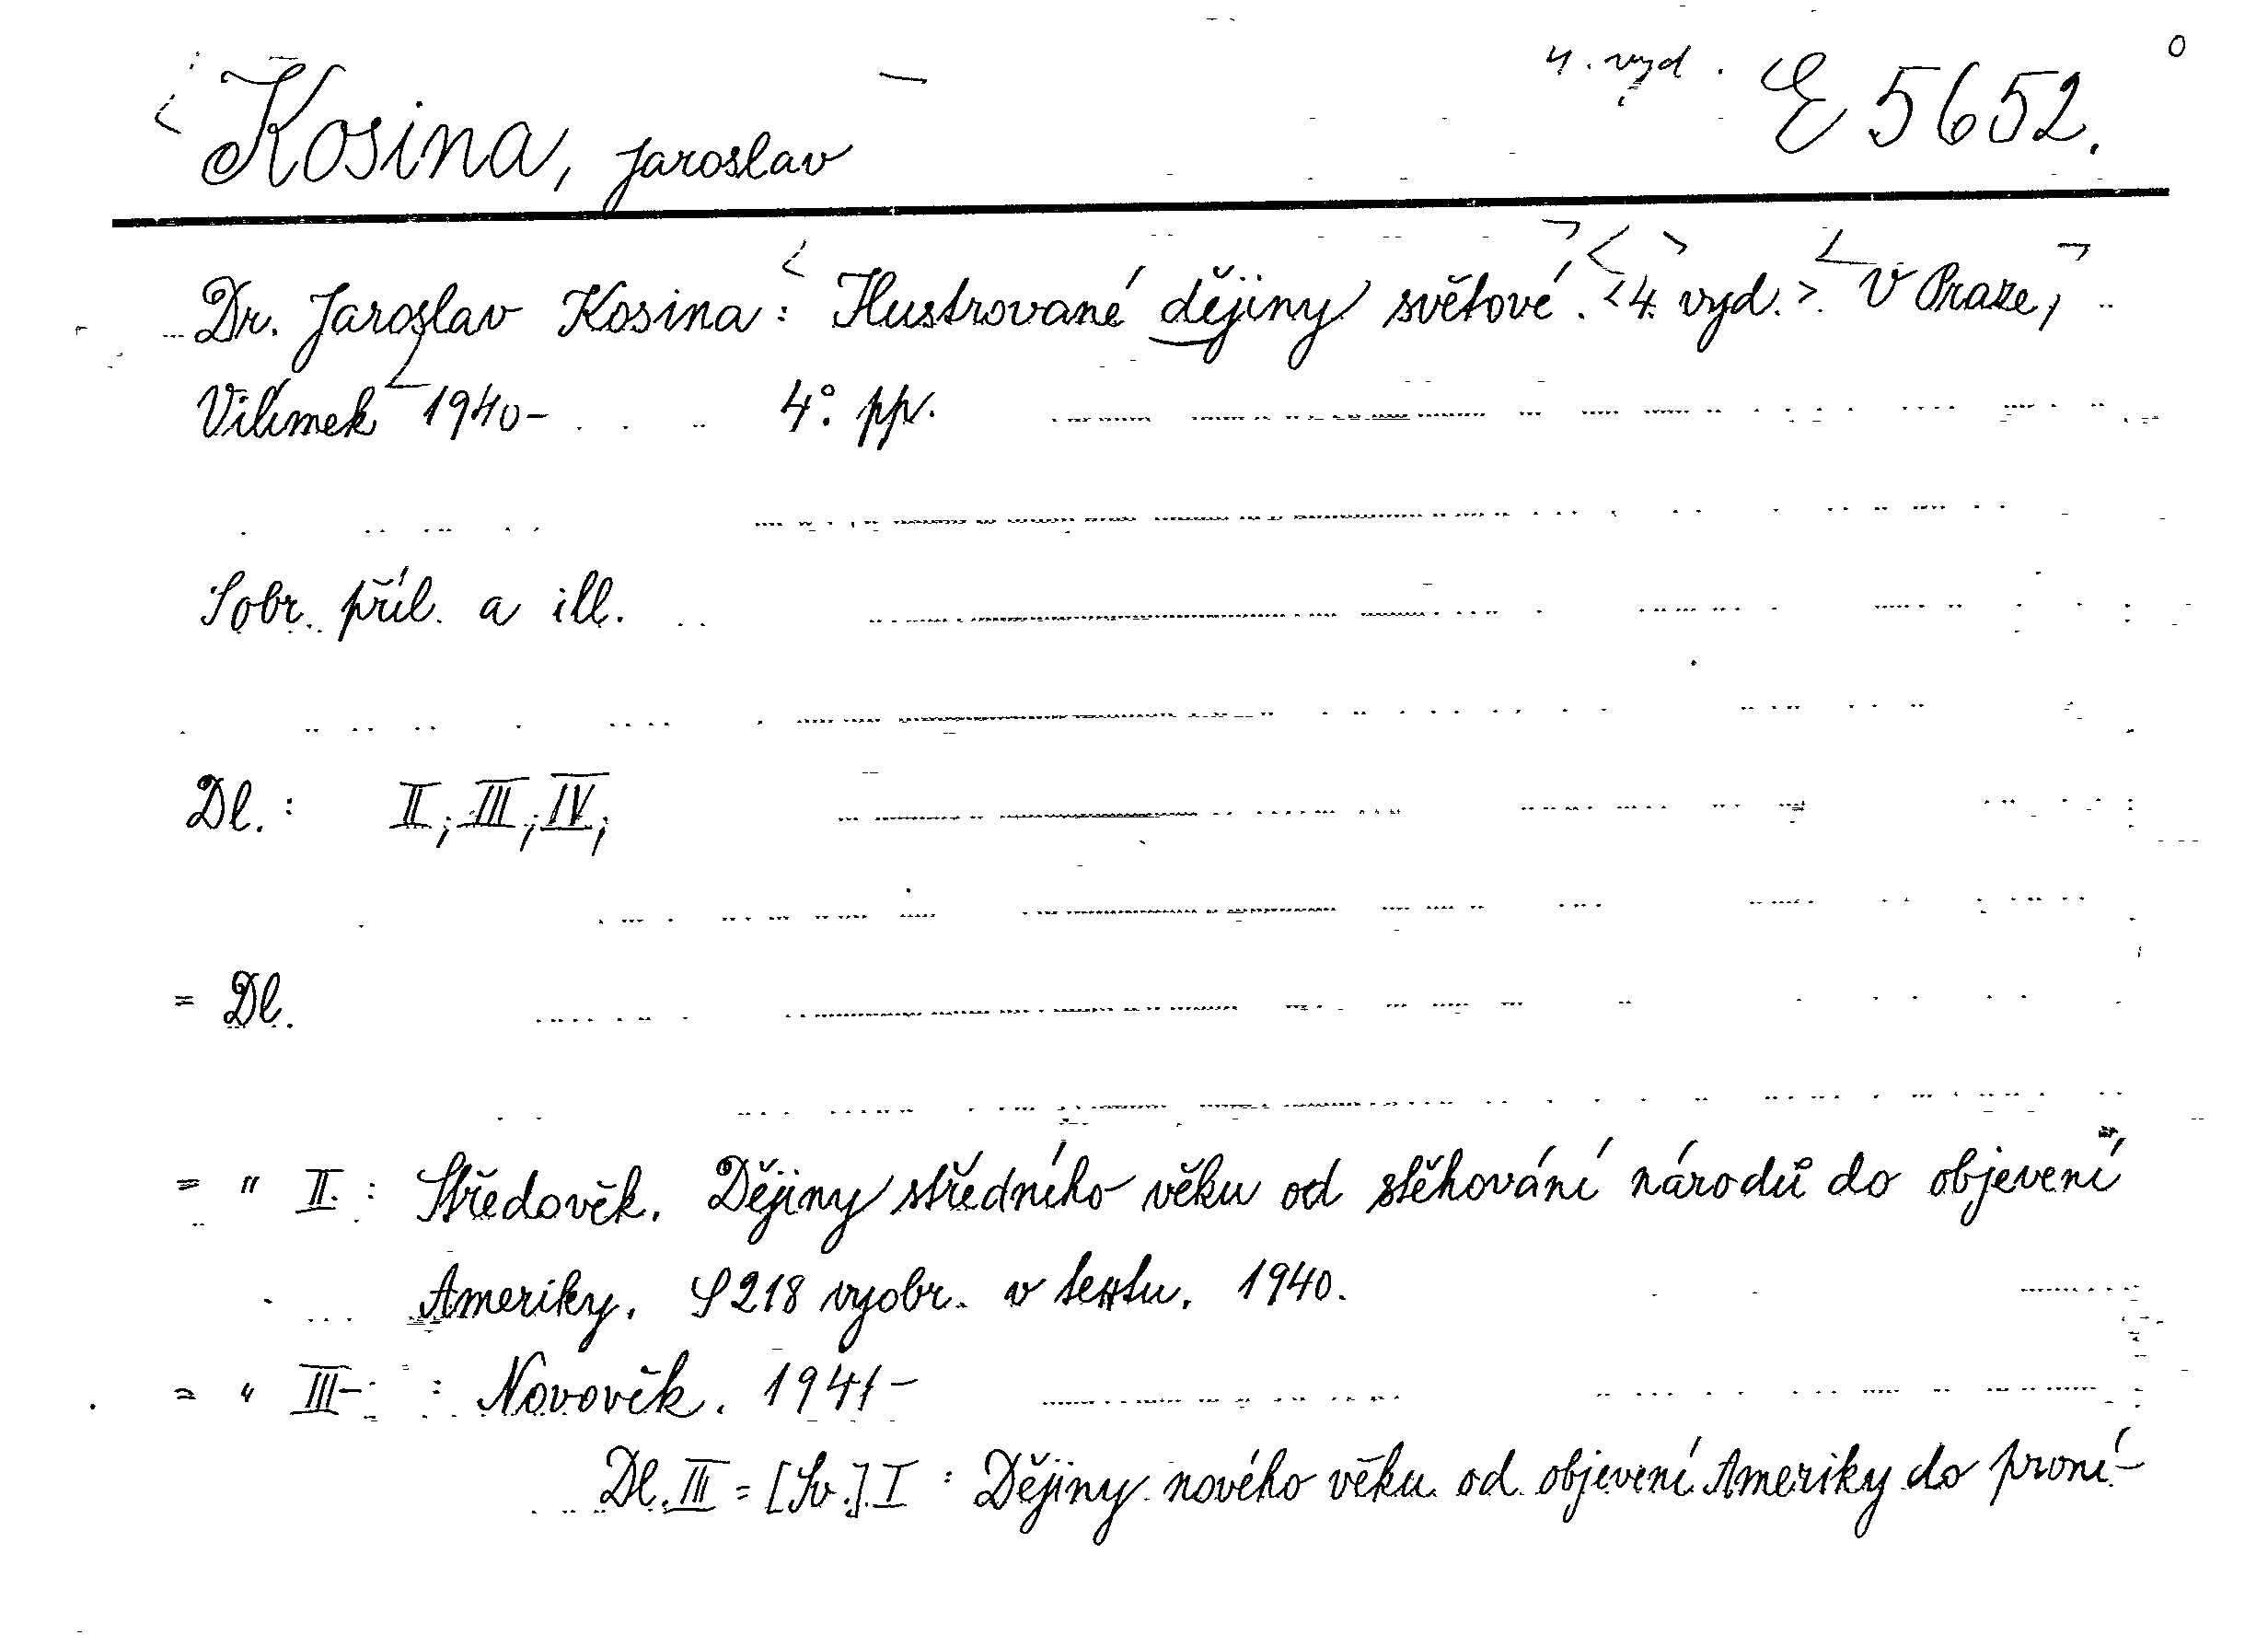 4. vyd. E 5652.
Kosina, Jaroslav
Dr. Jaroslav Kosina: Ilustrované dějiny světové. <4. vyd.>. V Praze,
Vilímek 1940- 4°. pp.
S obr. příl. a ill.
Dl.: II, III, IV,
= Dl.
= " II.: Středověk. Dějiny středního věku od stěhování národů do objevení
Ameriky. S 218 vyobr. v textu. 1940.
= " III- : Novověk. 1941-
Dl. III = [Sv.] I : Dějiny nového věku od objevení Ameriky do první-